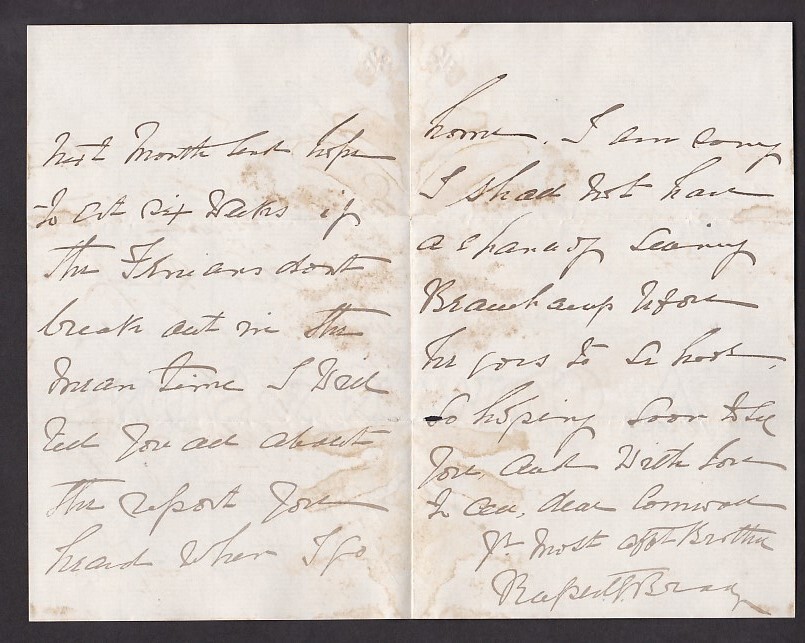 next month and hope
to get six weeks if
the Fenians dont
break out in the
mean time I will
tell you all about
the report you
heard when I go
home. I am sorry
I shall not have
a chance of seeing
Beauchamp before
he goes to school.
So hoping soon to see
you, and with love
to all, dear
Yr. most afft Brother
Rupert